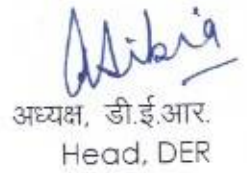 अध्यक्ष, डी.ई.आर.
Head, DER